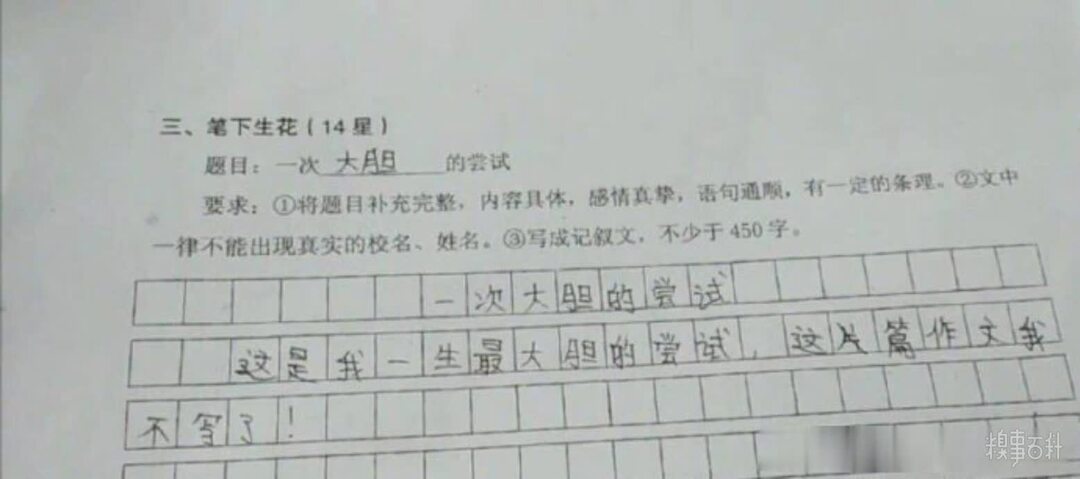 三、笔下生花（14 星）
题目：一次 大胆 的尝试
要求：①将题目补充完整，内容具体，感情真挚，语句通顺，有一定的条理。②文中
一律不能出现真实的校名、姓名。③写成记叙文，不少于 450 字。
一次大胆的尝试
这是我一生最大胆的尝试，这篇作文我
不写了！
糗事百科